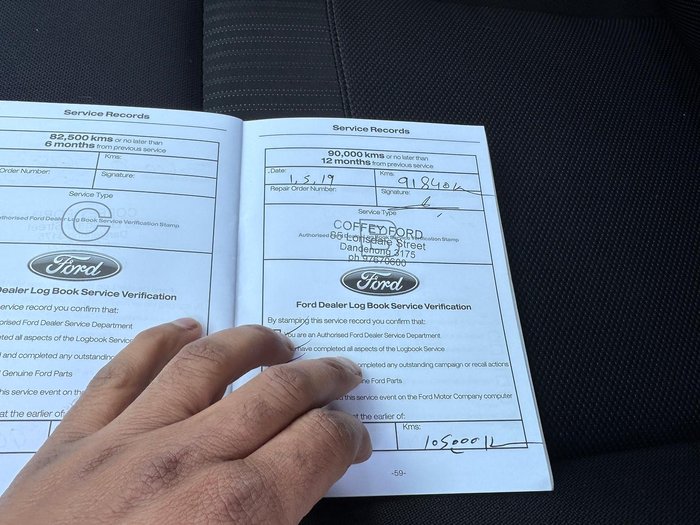 Service Records
82,500 kms or no later than
6 months from previous service
Kms:
Order Number:
Signature:
Service Type
C
Authorised Ford Dealer Log Book Service Verification Stamp
Ford
Dealer Log Book Service Verification
service record you confirm that:
Authorised Ford Dealer Service Department
completed all aspects of the Logbook Service
and completed any outstanding
Genuine Ford Parts
this service event on
at the earlier of:
Service Records
90,000 kms or no later than
12 months from previous service
Date: 1.5.19
Kms: 91840k
Repair Order Number:
Signature:
Service Type
COFFEY FORD
Authorised Ford Dealer Log Book Service Verification Stamp
85 Lonsdale Street
Dandenong 3175
Ford
Ford Dealer Log Book Service Verification
By stamping this service record you confirm that:
You are an Authorised Ford Dealer Service Department
have completed all aspects of the Logbook Service
completed any outstanding campaign or recall actions
Ford Parts
this service event on the Ford Motor Company computer
at the earlier of:
Kms:
105000k
-59-